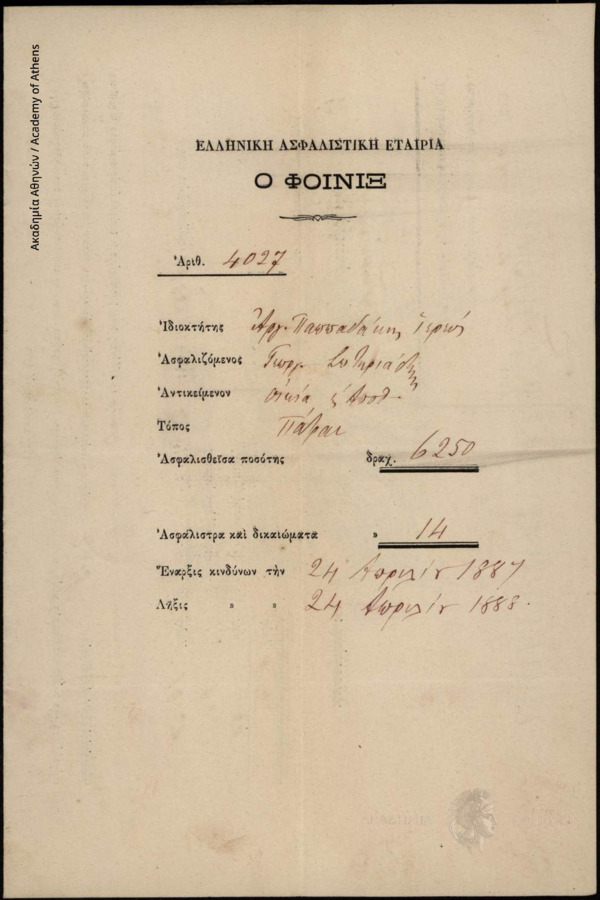 Ακαδημία Αθηνών / Academy of Athens
ΕΛΛΗΝΙΚΗ ΑΣΦΑΛΙΣΤΙΚΗ ΕΤΑΙΡΙΑ
Ο ΦΟΙΝΙΞ
Ἀριθ. 4027
Ἰδιοκτήτης Ἀργ. Παππαδάκης Ἱερεύς
Ἀσφαλιζόμενος Γεωργ. Σωτηριάδης
Ἀντικείμενον οἰκία
Τόπος Πάτραι
Ἀσφαλισθεῖσα ποσότης δραχ. 6250
Ἀσφάλιστρα καὶ δικαιώματα » 14
Ἔναρξις κινδύνων τὴν 24 Απριλίου 1887
Λῆξις » » 24 Απριλίου 1888.